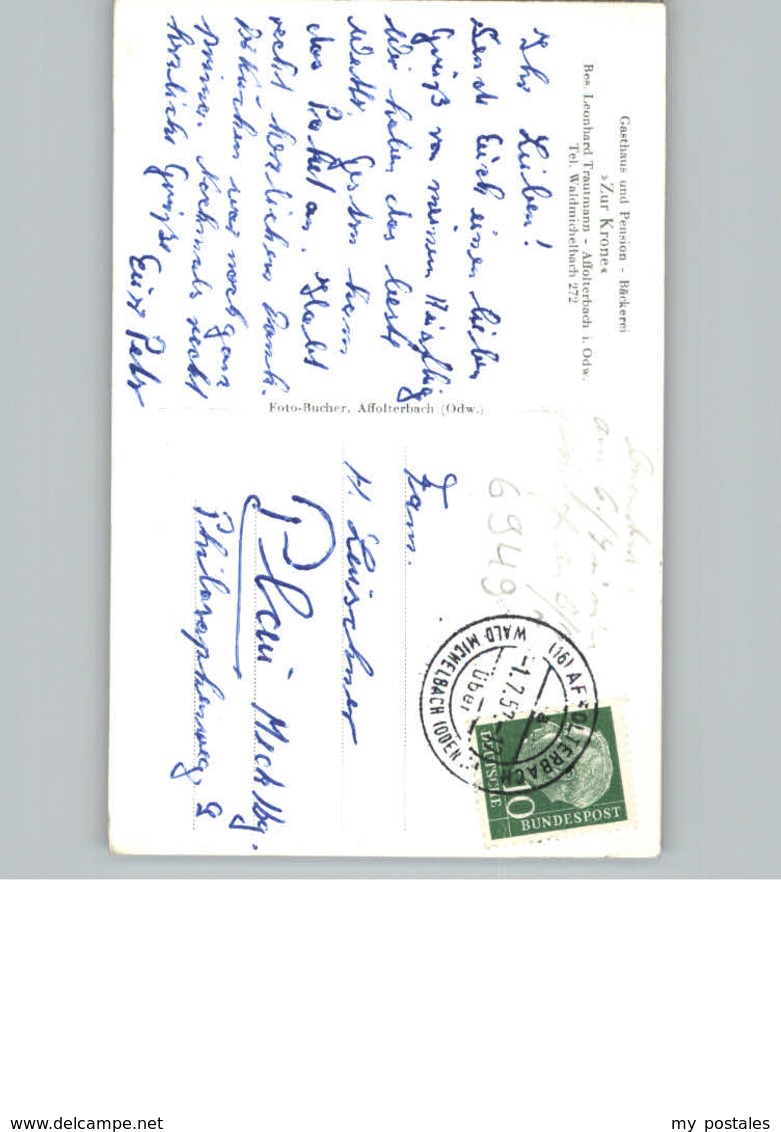 Gasthaus und Pension - Bäckerei
»Zur Krone«
Bes. Leonhard Trautmann - Affolterbach i. Odw.
Tel. Waldmichelbach 272
Ihr Lieben!
Sende Euch einen lieben
Gruß von meinem Ausflug
Wir haben das beste
Wetter. Gestern kam
das Paket an. Habt
recht herzlichen Dank.
war noch ganz
prima. Nochmals recht
herzliche Grüße
Euer Peter
Foto-Bucher, Affolterbach (Odw.)
Fam.
H. Leuschner
Philosophenweg 9
6949
(16) AFFOLTERBACH
über
WALD MICHELBACH (ODENW)
-1.7.57
a
DEUTSCHE
BUNDESPOST
10
www.delcampe.net
my postales